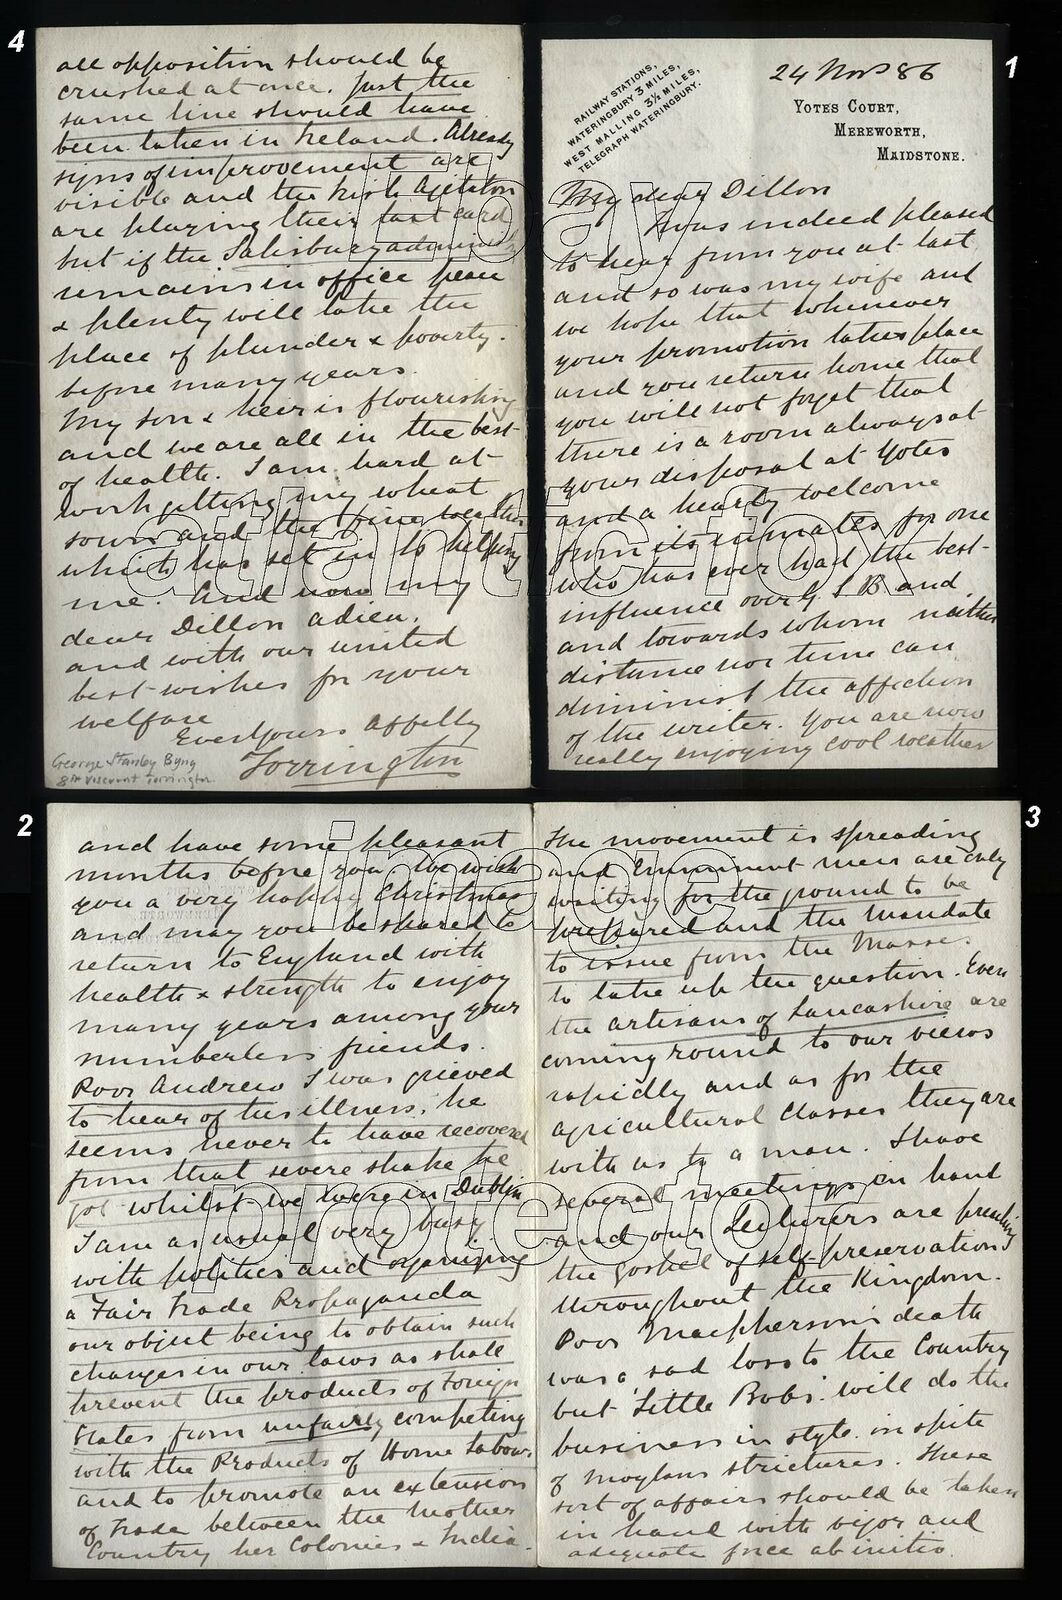 1
RAILWAY STATIONS,
WATERINGBURY 3 MILES,
WEST MALLING 3½ MILES,
TELEGRAPH WATERINGBURY.
24 Novr 86
YOTES COURT,
MEREWORTH,
MAIDSTONE.
My dear Dillon
I was indeed pleased
to hear from you at last
and so was my wife and
we hope that whenever
your promotion takes place
and you return home that
you will not forget that
there is a room always at
your disposal at Yotes
and a hearty welcome
from its inmates for one
who has ever had the best
influence over G. S. B. and
and towards whom neither
distance nor time can
diminish the affection
of the writer. You are now
really enjoying cool weather
2
and have some pleasant
months before you. We wish
you a very happy Christmas
and may you be spared to
return to England with
health & strength to enjoy
many years among your
numberless friends.
Poor Andrew I was grieved
to hear of his illness. he
seems never to have recovered
from that severe shake he
got whilst we were in Dublin
I am as usual very busy
with politics and organizing
a Fair Trade Propaganda
our object being to obtain such
changes in our laws as shall
prevent the products of Foreign
States from unfairly competing
with the Products of Home Labour
and to promote an extension
of Trade between the Mother
Country her Colonies & India.
3
The movement is spreading
and Emminent men are only
waiting for the ground to be
prepared and the Mandate
to issue from the Masses
to take up the question. Even
the artisans of Lancashire are
coming round to our views
rapidly and as for the
agricultural classes they are
with us to a man. I have
several meetings on hand
and our Lecturers are preaching
the gospel of self-preservation
throughout the Kingdom.
Poor Macpherson's death
was a sad loss to the Country
but 'Little Bobs' will do the
business in style in spite
of Moylans strictures. These
sort of affairs should be taken
in hand with vigor and
adequate force ab initio.
4
all opposition should be
crushed at once. Just the
same line should have
been taken in Ireland. Already
signs of improvement are
visible and the Irish Agitators
are playing their last card
but if the Salisbury
remains in office peace
& plenty will take the
place of plunder & poverty.
before many years.
My son & heir is flourishing
and we are all in the best
of health. I am hard at
work getting my wheat
sown and the fine weather
which has set in is helping
me. And now my
dear Dillon adieu.
and with our united
best wishes for your
welfare
Ever Yours Affectly
Torrington
George Stanley Byng
8th Viscount Torrington
image
protector